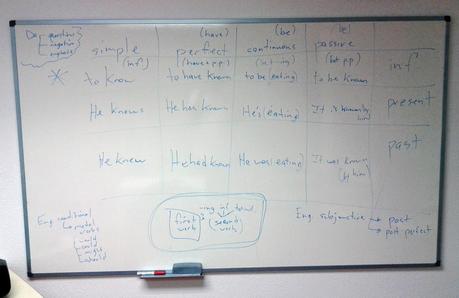 Do
questions
negative
emphasis
(have) (be) be
simple perfect continuous passive
(inf) (have + pp) (be + ing) (be + pp) inf
to know to have known to be (eating) to be known
He knows He has known He's (eating) It is known by him present
He knew He had known He was (eating) It was known (by him) past
Eng. conditional
modal verbs
would
could
might
should
first verb
(second verb)
Eng. subjunctive
past
past perfect